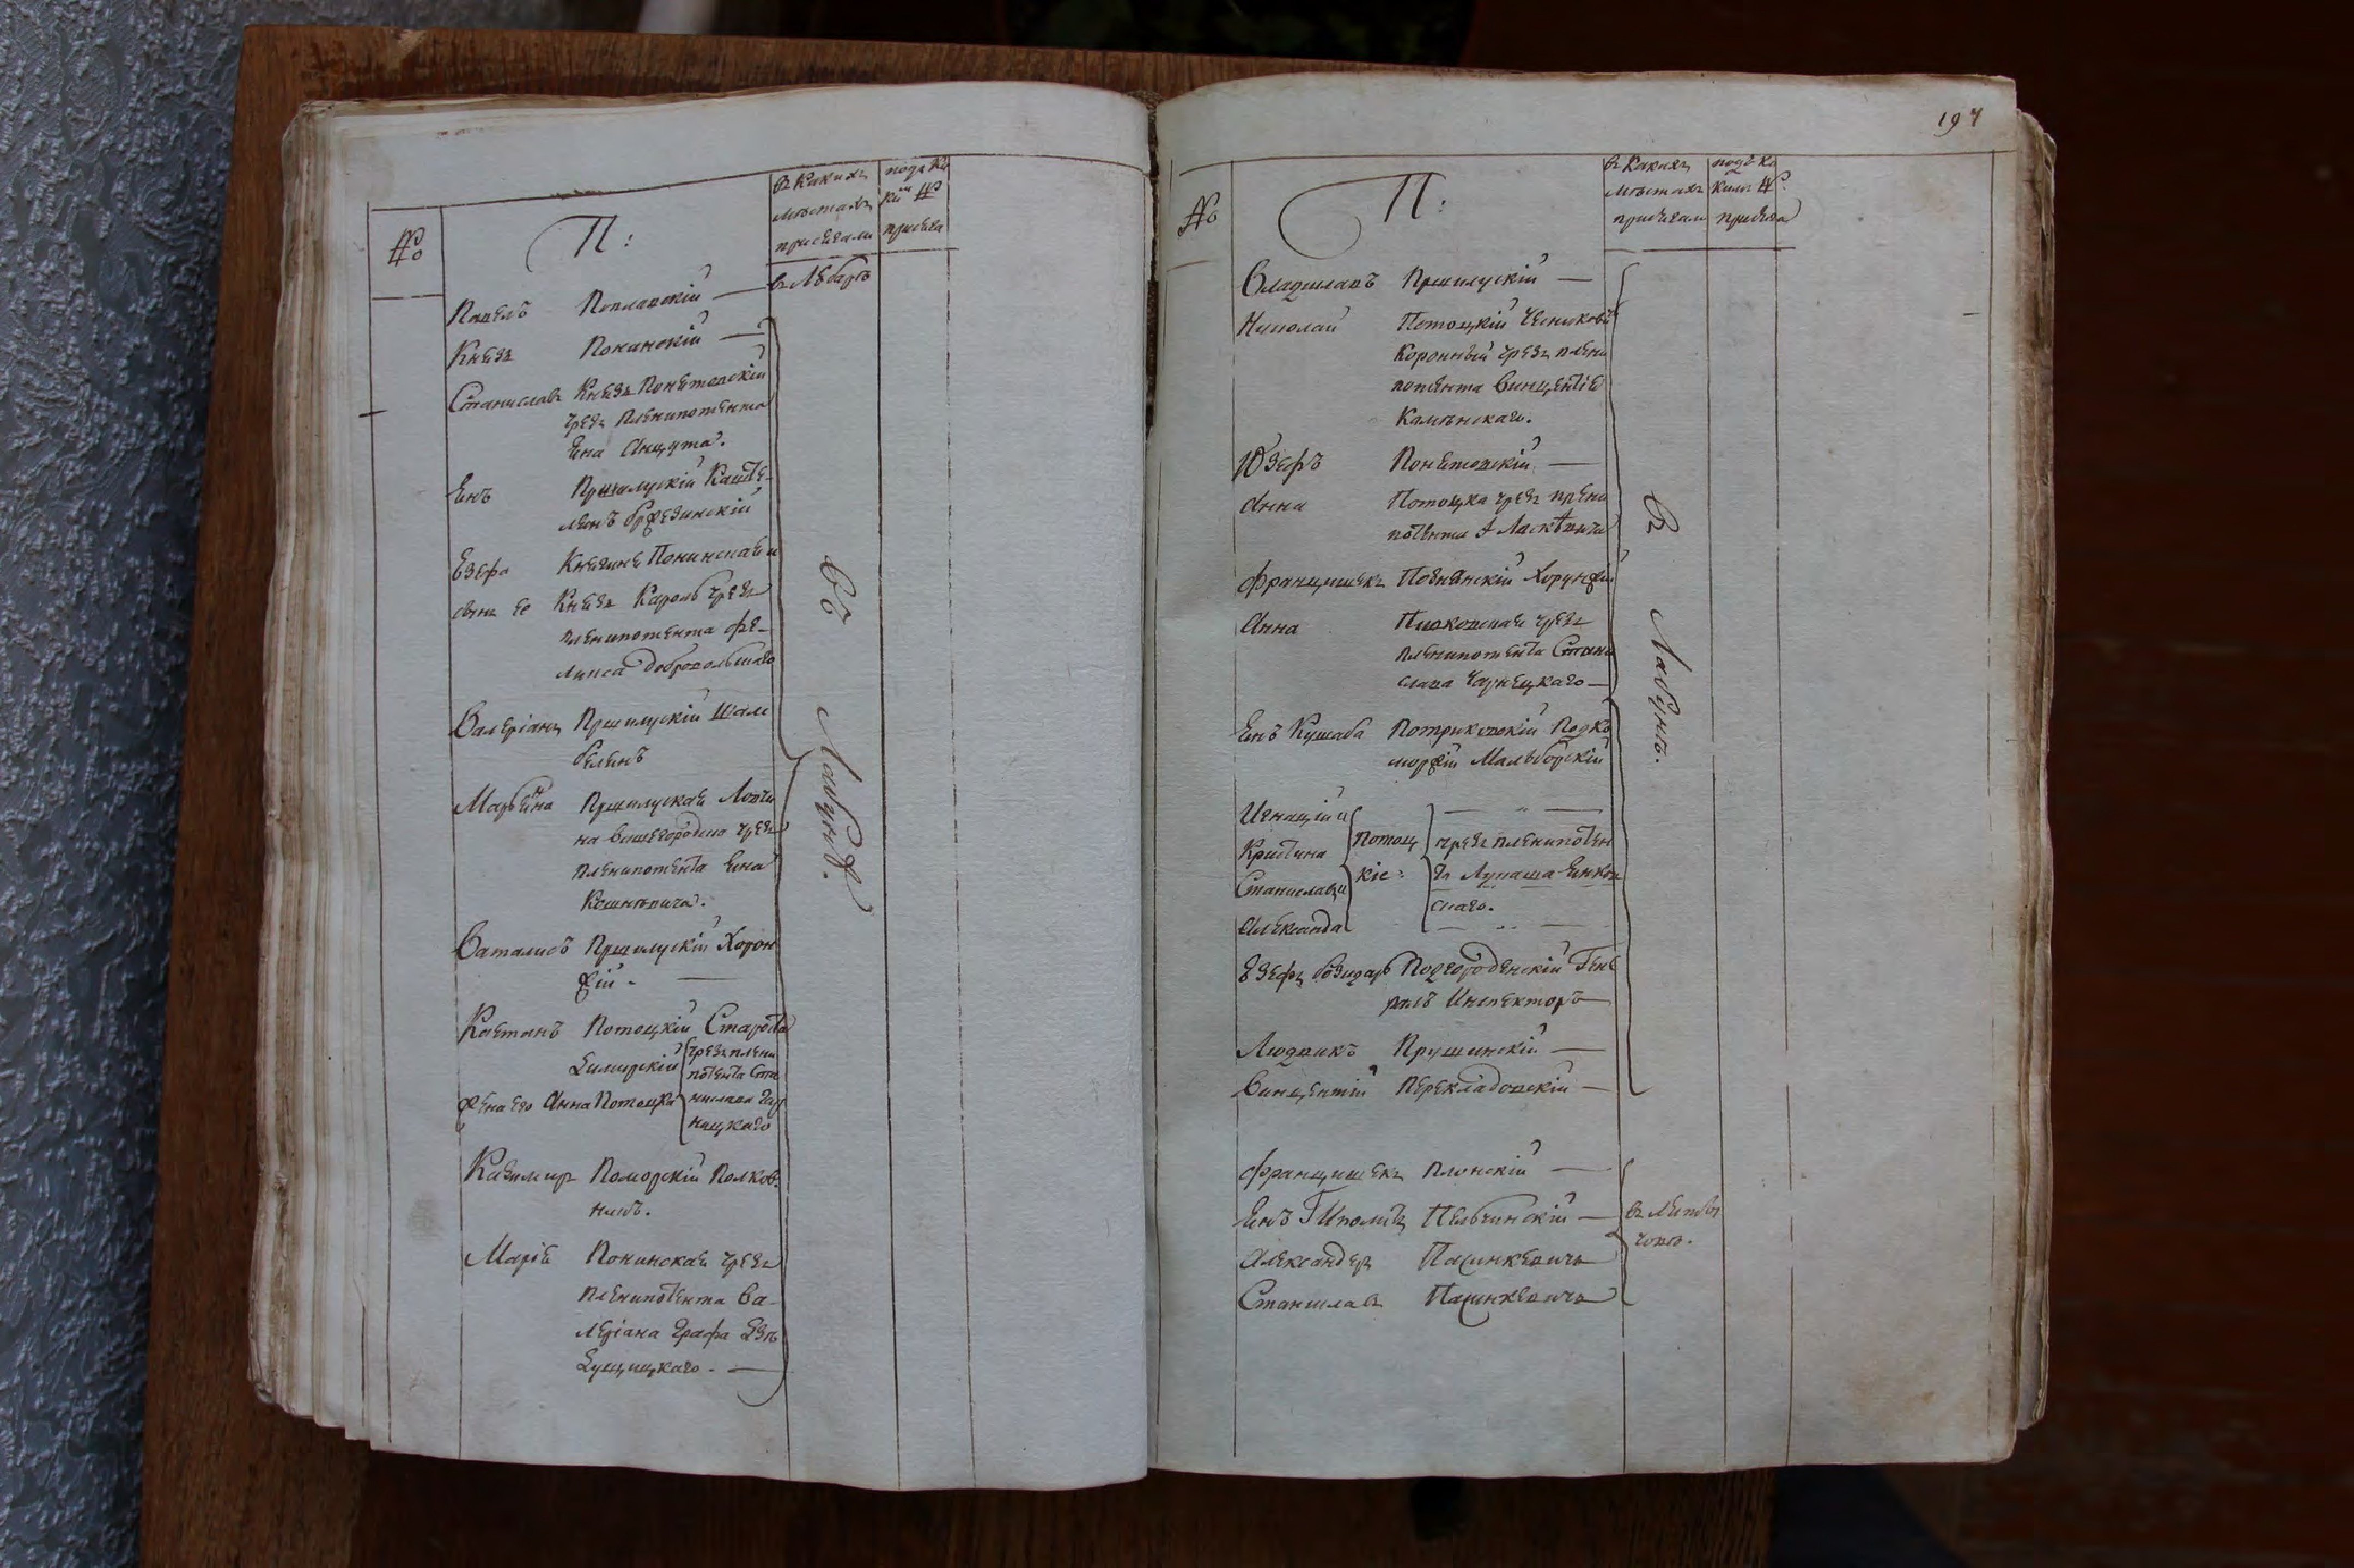 №
П:
в какихъ
местахъ
присягали
подъ ка
кий №
присяга
Павелъ Поплавскій —
в Лабунѣ
Князь Понинскій —
Станиславъ Князь Понятовскій
чрезъ пленипотента
Яна Анцута.
Янъ Пршилускій Каште-
лянъ бржезинскій
Езефа Княгиня Понинская и
сынъ ее Князь Кароль чрезъ
пленипотента Фе-
ликса Добровольскаго
Валеріанъ Пршилускій Шам
белянъ
Марьяна Пршилуская Ловчи
на вышегородска чрезъ
пленипотента Яна
Ваталисъ Пршилускій Хорон
жій. —
Каетанъ Потоцкій Староста
чрезъ плени
потента Ста
жена его Анна Потоцка
нислава Чар
нецкаго
Казимиръ Поморскій Полков.
никъ.
Марія Понинская чрезъ
пленипотента Ва-
леріана графа
въ Лабунѣ.
197
№
П:
в какихъ
местахъ
присягали
подъ ка
кимъ №.
присяга
Владиславъ Пршилускій —
Николай Потоцкій Чесниковъ
Коронный чрезъ плени
потента Винцентія
Каменскаго.
Юзефъ Понятовскій —
Анна Потоцка чрезъ плени
потента
Францишекъ Познанскій Хорунжій
Анна чрезъ
пленипотента Стани
слава Чарнецкаго —
Янъ Кушаба Потриковскій Подко
моржій Мальборскій
Игнацій и
Криштина
Станиславъ и
Александа
Потоц
кіе:
чрезъ пленипотен
та Лукаша Янков
скаго.
Езефъ Бозидаръ Подгороденскій Гене
ралъ Инспекторъ —
Людвикъ Прушинскій —
Винцентій Перекладовскій —
въ Лабунѣ.
Францишекъ Плонскій —
Янъ Г Иполитъ Пельчинскій —
Александеръ Пасинкевичъ
Станиславъ Пасинкевичъ